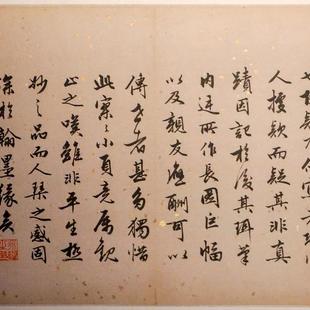 而疑其非真
蹟因記於後其珥筆
内廷所作長圖巨幅
以及親友應酬可以
傳世者甚多獨惜
此寥〻小頁竟屬觀
止之嘆雖非平生極
妙之品而人琴之感固
深於翰墨緣矣